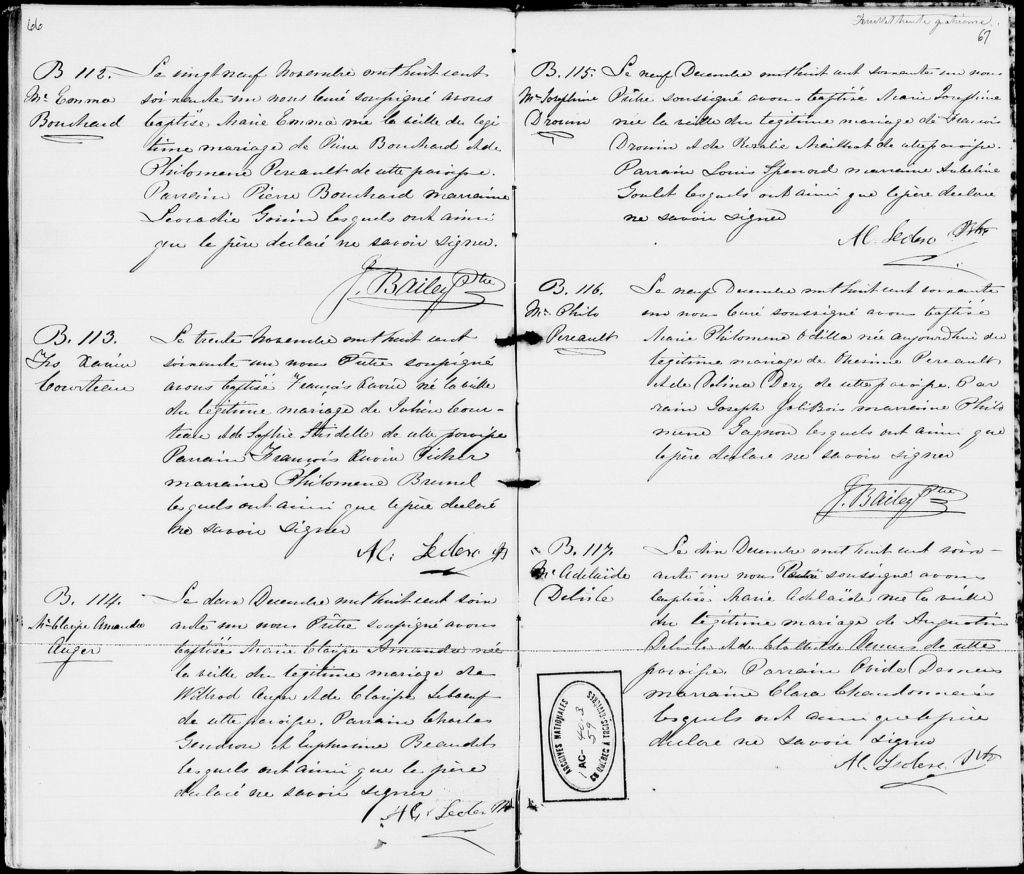 66
B. 112.
Me Emma
Bouchard
Le vingt neuf Novembre mil huit cent
soixante un nous Curé soussigné avons
baptisé Marie Emma née la veille du légi
time mariage de Pierre Bouchard & de
Philomene Pereault de cette paroisse.
Parrain Pierre Bouchard marraine
Leocadie Gouin lesquels ont ainsi
que le père declaré ne savoir signer.
J. Bailey Ptre
B. 113.
Frs Xavier
Courteau
Le trente Novembre mil huit cent
soixante un nous Prêtre soussigné
avons baptisé François Xavier né la veille
du légitime mariage de Julien Cour-
teau & de Sophie de cette paroisse
Parrain François Xavier
marraine Philomene Brunel
lesquels ont ainsi que le père declaré
ne savoir signer
Al. Leclerc Ptr
B. 114.
Me Elaïse Amanda
Auger
Le deux Decembre mil huit cent soix
ante un nous Prêtre soussigné avons
baptisé Marie Amanda née
la veille du légitime mariage de
Auger & de Leboeuf
de cette paroisse. Parrain Charles
Gendron et Euphrosine Beaudet
lesquels ont ainsi que le père
declaré ne savoir signer
Al. Leclerc Ptr
Feuillet trente quatrième.
67
B. 115.
Me Josephine
Drouin
Le neuf Decembre mil huit cent soixante un nous
Prêtre soussigné avons baptisé Marie Josephine
née la veille du légitime mariage de François
Drouin & de Rosalie de cette paroisse.
Parrain Louis Spenard marraine
Goulet lesquels ont ainsi que le père declaré
ne savoir signer
Al. Leclerc Ptr
B. 116.
Me Philo
Pereault
Le neuf Decembre mil huit cent soixante
un nous Curé soussigné avons baptisé
Marie Philomene Odilla née aujourd'hui du
légitime mariage de Pereault
& de Delina Dery de cette paroisse. Par
rain Joseph Jolibois marraine Philo
mene Gagnon lesquels ont ainsi que
le père declaré ne savoir signer
J. Bailey Ptre
B. 117.
Me Adelaïde
Delisle
Le dix Decembre mil huit cent soix-
ante un nous Prêtre soussigné avons
baptisé Marie Adelaïde née la veille
du légitime mariage de Augustin
Delisle & de Clothilde Demers de cette
paroisse. Parrain Ovide Demers
marraine Clara Chandonnais
lesquels ont ainsi que le père
declaré ne savoir signer
Al. Leclerc Ptr
ARCHIVES NATIONALES
AC-
DU QUÉBEC À TROIS-RIVIÈRES